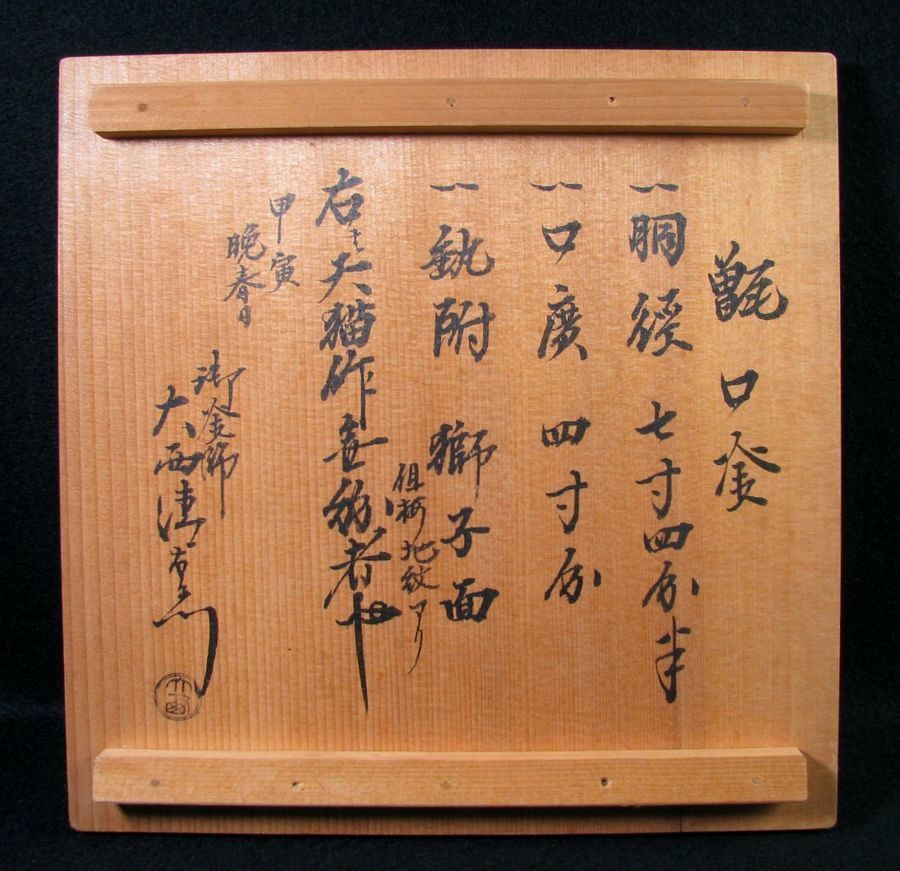 甑口釜
一胴径 七寸四分半
一口廣 四寸分
一釻附 獅子面
但梅地紋アリ
右者天猫作無紛者也
甲寅
晩春日
御釜師
大西清右衛門